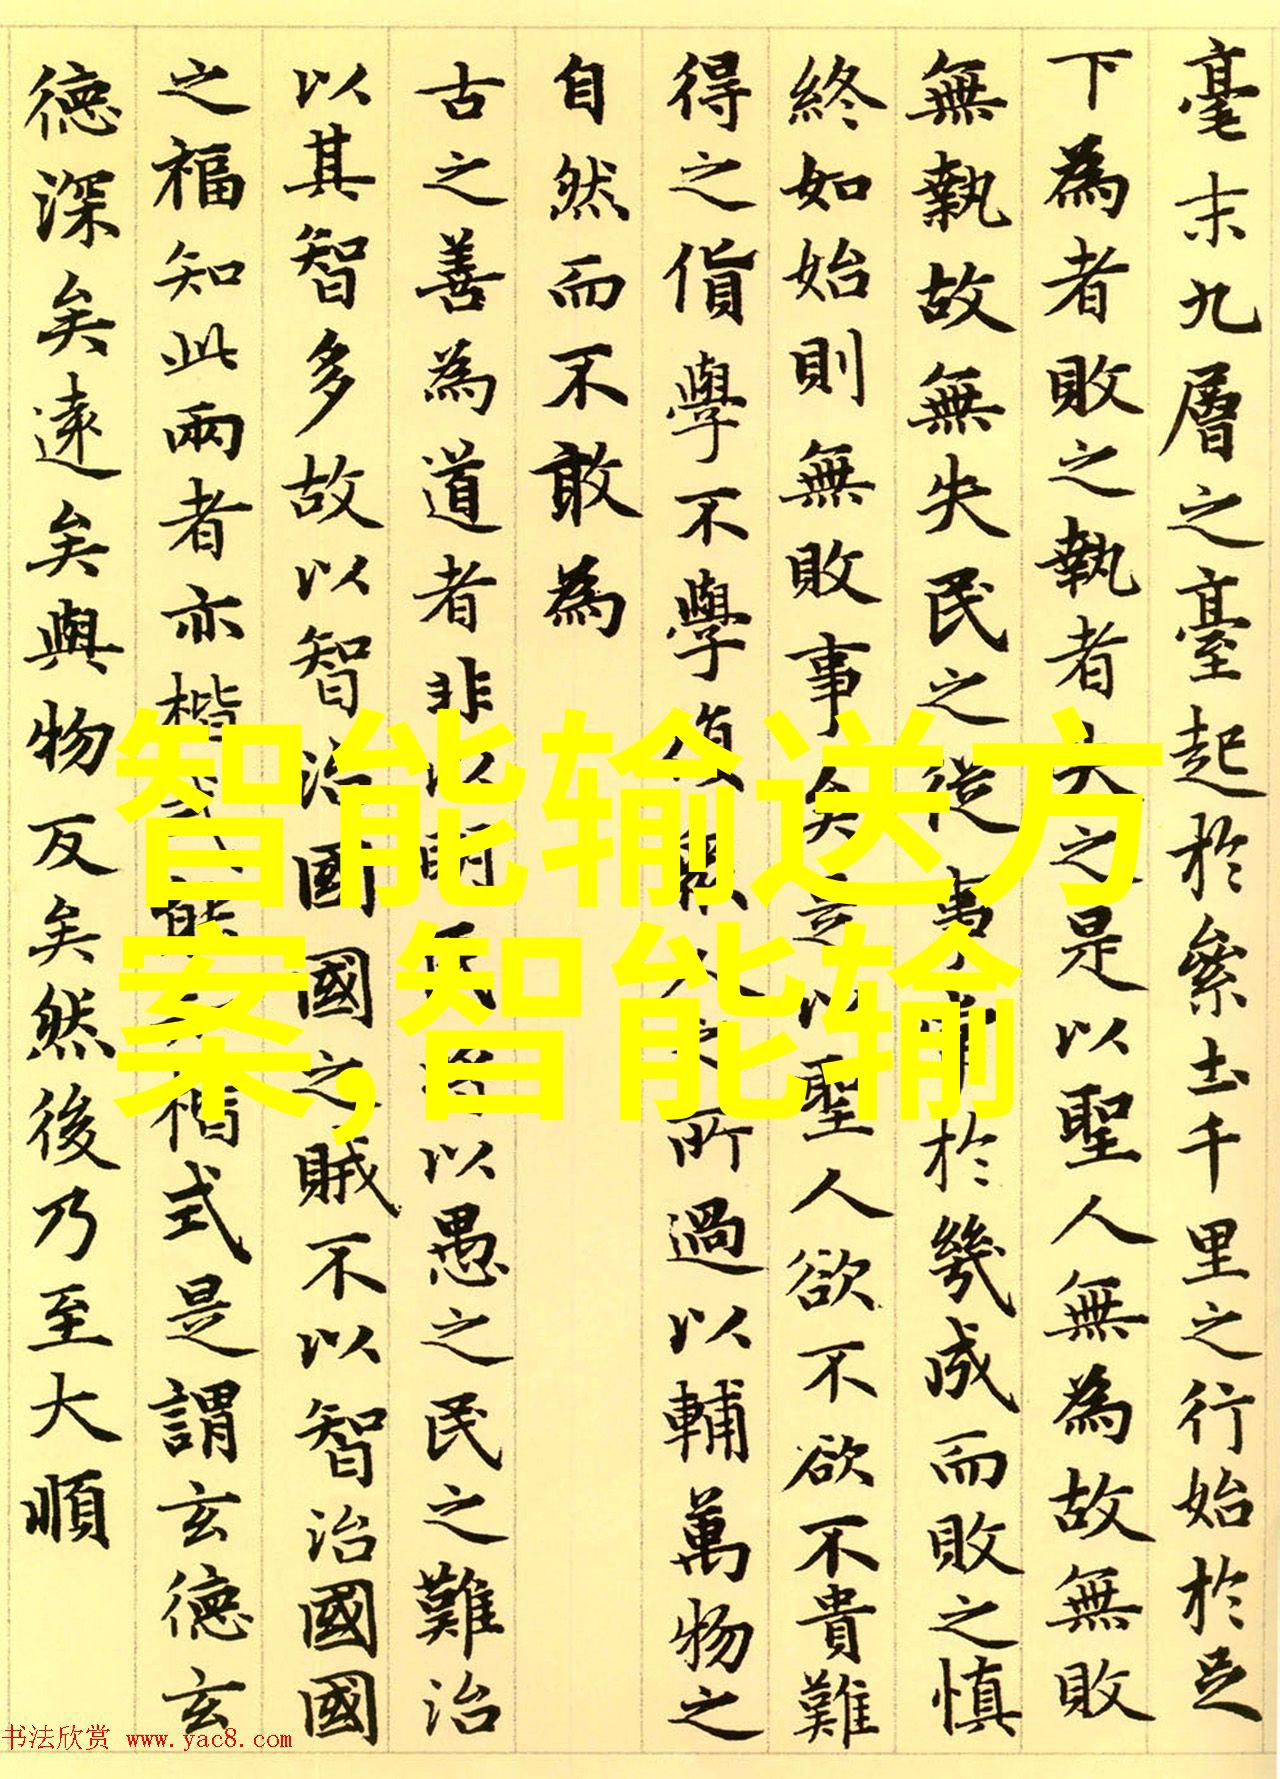 毫末九層之臺起於絫土千里之行始於足
下為者敗之執者失之是以聖人無為故無敗
無執故無失民之從事常於幾成而敗之慎
終如始則無敗事矣是以聖人欲不欲不貴難
得之貨學不學復眾人之所過以輔萬物之
自然而不敢為
古之善為道者非以明民將以愚之民之難治
以其智多故以智治國國之賊不以智治國國
之福知此兩者亦楷式能知楷式是謂玄德玄
德深矣遠矣與物反矣然後乃至大順
智能输送方
案,智能输
书法欣赏 www.yac8.com